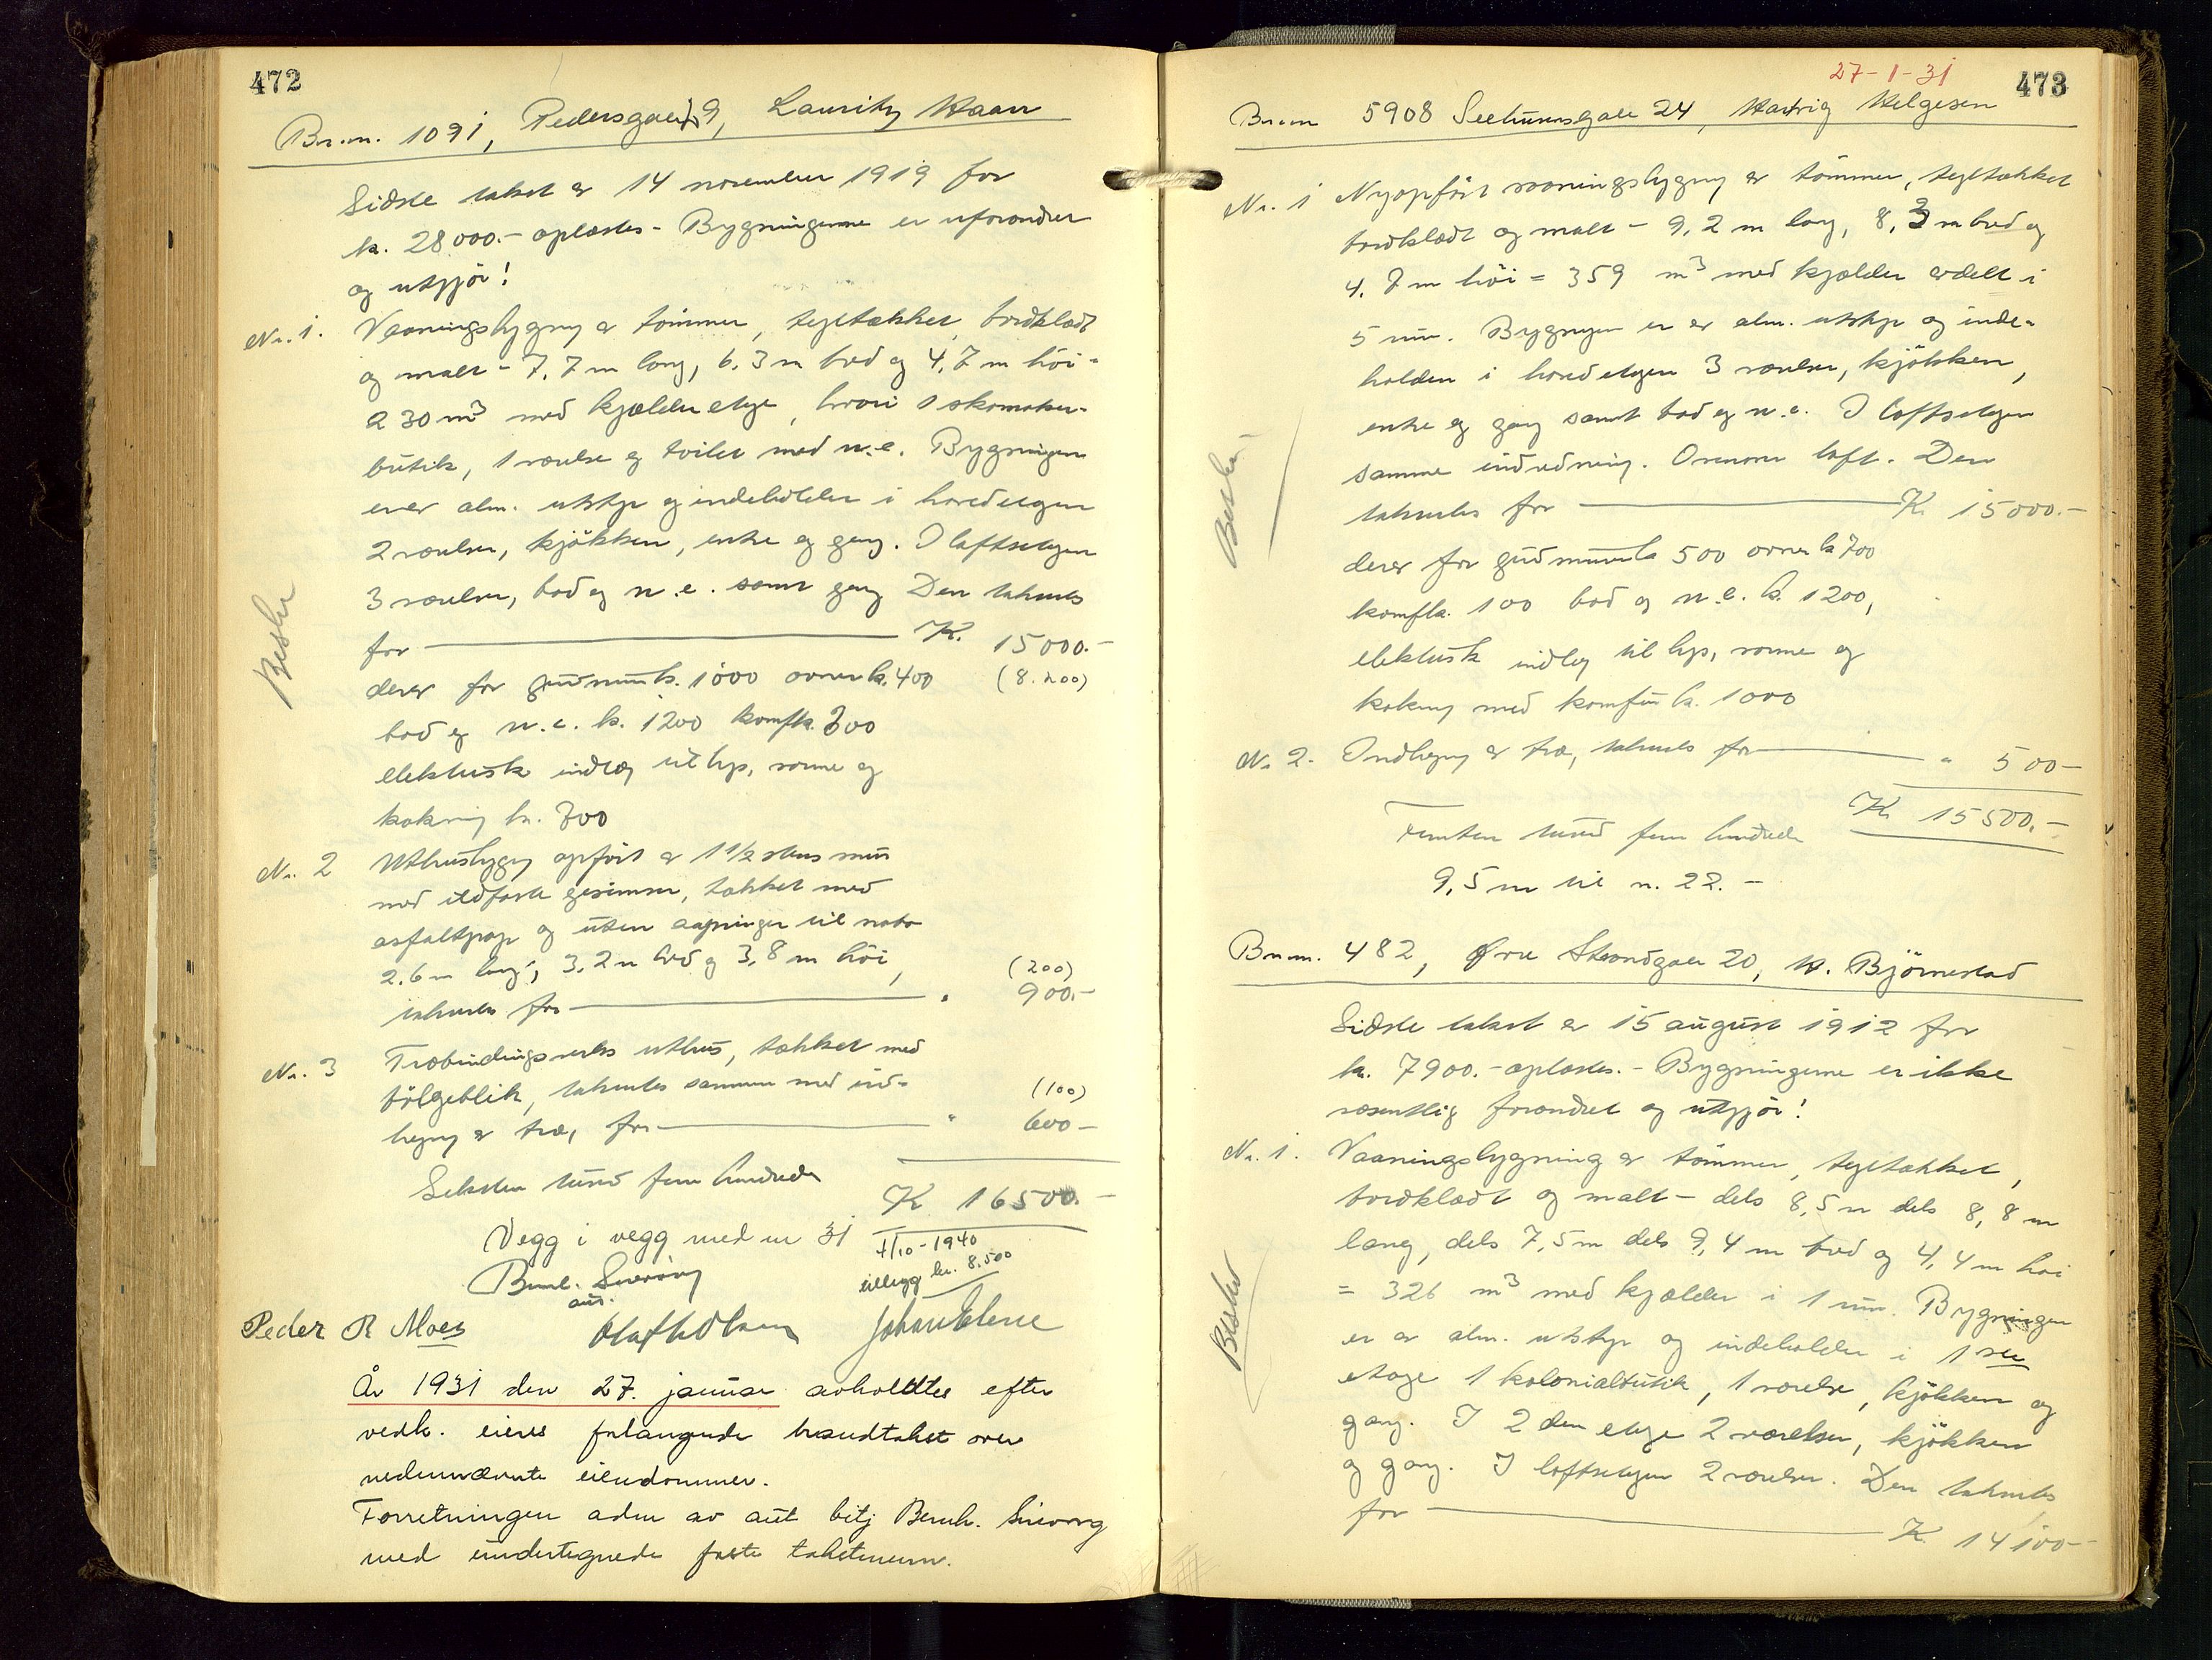 472
Br.nr. 1091, Pedersgaten 9, Lauritz Haar
Sidste takst er 14 november 1919 for
kr. 28000.- oplæstes - Bygningerne er uforandret
og utgjör!
Nr. 1. Vaaningsbygng er tömmer, tegltækket, bordklædt
og malt - 7,7 m lang, 6,3 m bred og 4,7 m höi =
230 m³ med kjælderetage, hvori 1 skomaker-
butik, 1 værelse og toilet med w.c. Bygningen
er er alm. utstyr og indeholder i hovedetagen
2 værelser, kjökken, entre og gang. I loftsetagen
3 værelser, bad og w.c. samt gang Den takseres
for K. 15000.-
derav for grundmur k. 1000 ovner k. 400 (8.200)
bad og w.c. k. 1200 komf k. 300
elektrisk indlæg til lys, varme og
kokning kr. 300
Nr. 2 Uthusbygng opfört er 1 1/2 stens mur
med ildfaste gesimser, tækket med
asfaltpap og uten aapninger til nabo
2,6 m lang, 3,2 m bred og 3,8 m höi, (200)
takseres for " 900.-
Nr. 3 Træbindingsverks uthus, tækket med
bölgeblik, takseres sammen med ind- (100)
hegng er træ, for " 600-
Seksten tusind fem hundrede K 16500.-
Vegg i vegg med nr 31
7/10-1940
tillegg kr. 8.500
Bernh. Sneong
aut.
Peder R Moes Olaf L Olsen Johan
År 1931 den 27. januar avholdtes efter
vedk. eieres forlangende brandtakst over
nedennævnte eiendommer.
Forretningen adm av aut bitj Bernh. Sneong
med undertegnede faste takstmenn.
Beskr
27-1-31
473
Br.nr 5908 Seehusensgate 24, Hartvig Helgesen
Nr. 1 Nyopfört vaaningsbygng er tömmer, tegltækket
bordklædt og malt - 9,2 m lang, 8,3 m bred og
4,7 m höi = 359 m³ med kjælder avdelt i
5 rum. Bygngen er er alm. utstyr og inde-
holder i hovedetagen 3 værelser, kjökken,
entre og gang samt bad og w.c. I loftsetagen
samme indredning. Ovenom loft. Den
takseres for K. 15000.-
derav for grundmur k 500 ovner k 700
komf k. 100 bad og w.c. k. 1200,
elektrisk indlæg til lys, varme og
kokning med komfür k. 1000
Nr. 2. Indhegng er træ, takseres for " 500-
K 15500.-
Femten tusind fem hundrede
9,5 m til n. 22. -
Beskr
Br.nr. 482, Øvre Strandgate 20, Björnestad
Sidste takst er 15 august 1912 for
kr. 7900.- oplæstes. - Bygningerne er ikke
væsentlig forandret og utgjör!
Nr. 1. Vaaningsbygning er tömmer, tegltækket,
bordklædt og malt - dels 8,5 m dels 8,8 m
lang, dels 7,5 m dels 9,4 m bred og 4,4 m höi
= 326 m³ med kjælder i 1 rum. Bygningen
er er alm. utstyr og indeholder i 1ste
etage 1 kolonialbutik, 1 værelse, kjökken og
gang. I 2den etage 2 værelser, kjökken
og gang. I loftsetagen 2 værelser. Den takseres
for K. 14100-
Beskr